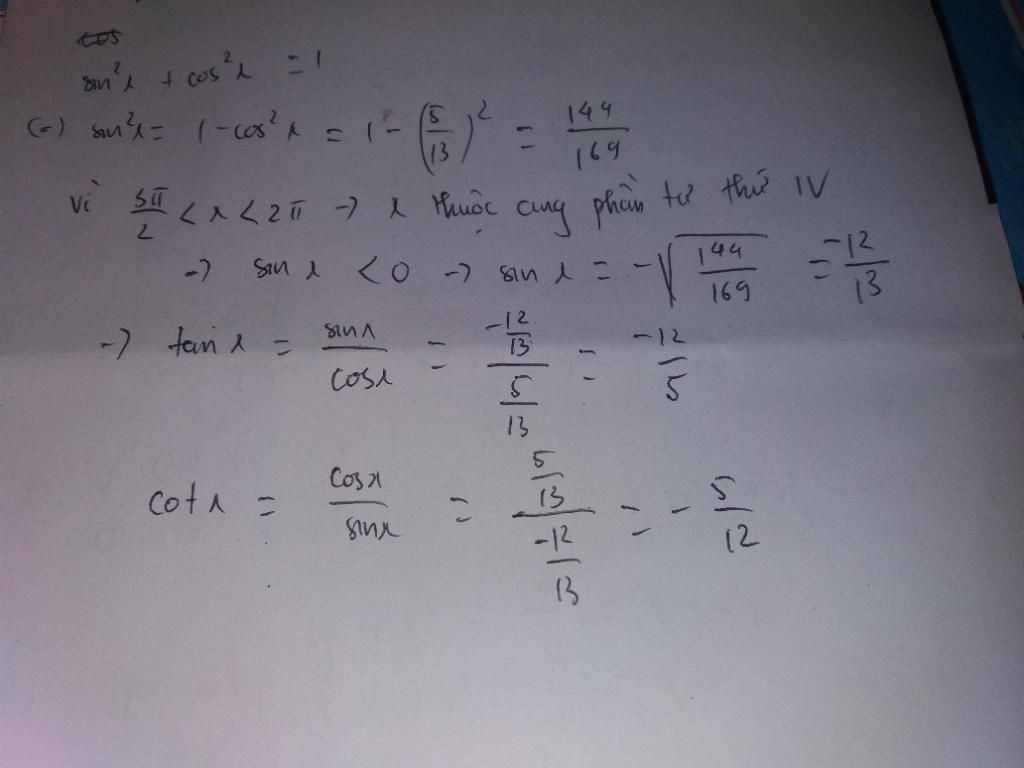 cos
sin²x + cos²x = 1
(=) sin²x = 1 - cos²x = 1 - (5/13)² = 144/169
Vì 3π/2 < x < 2π -> x thuộc cung phần tư thứ IV
-> sin x < 0 -> sin x = -√(144/169) = -12/13
-> tan x = sinx/cosx = (-12/13)/(5/13) = -12/5
cotx = cosx/sinx = (5/13)/(-12/13) = -5/12